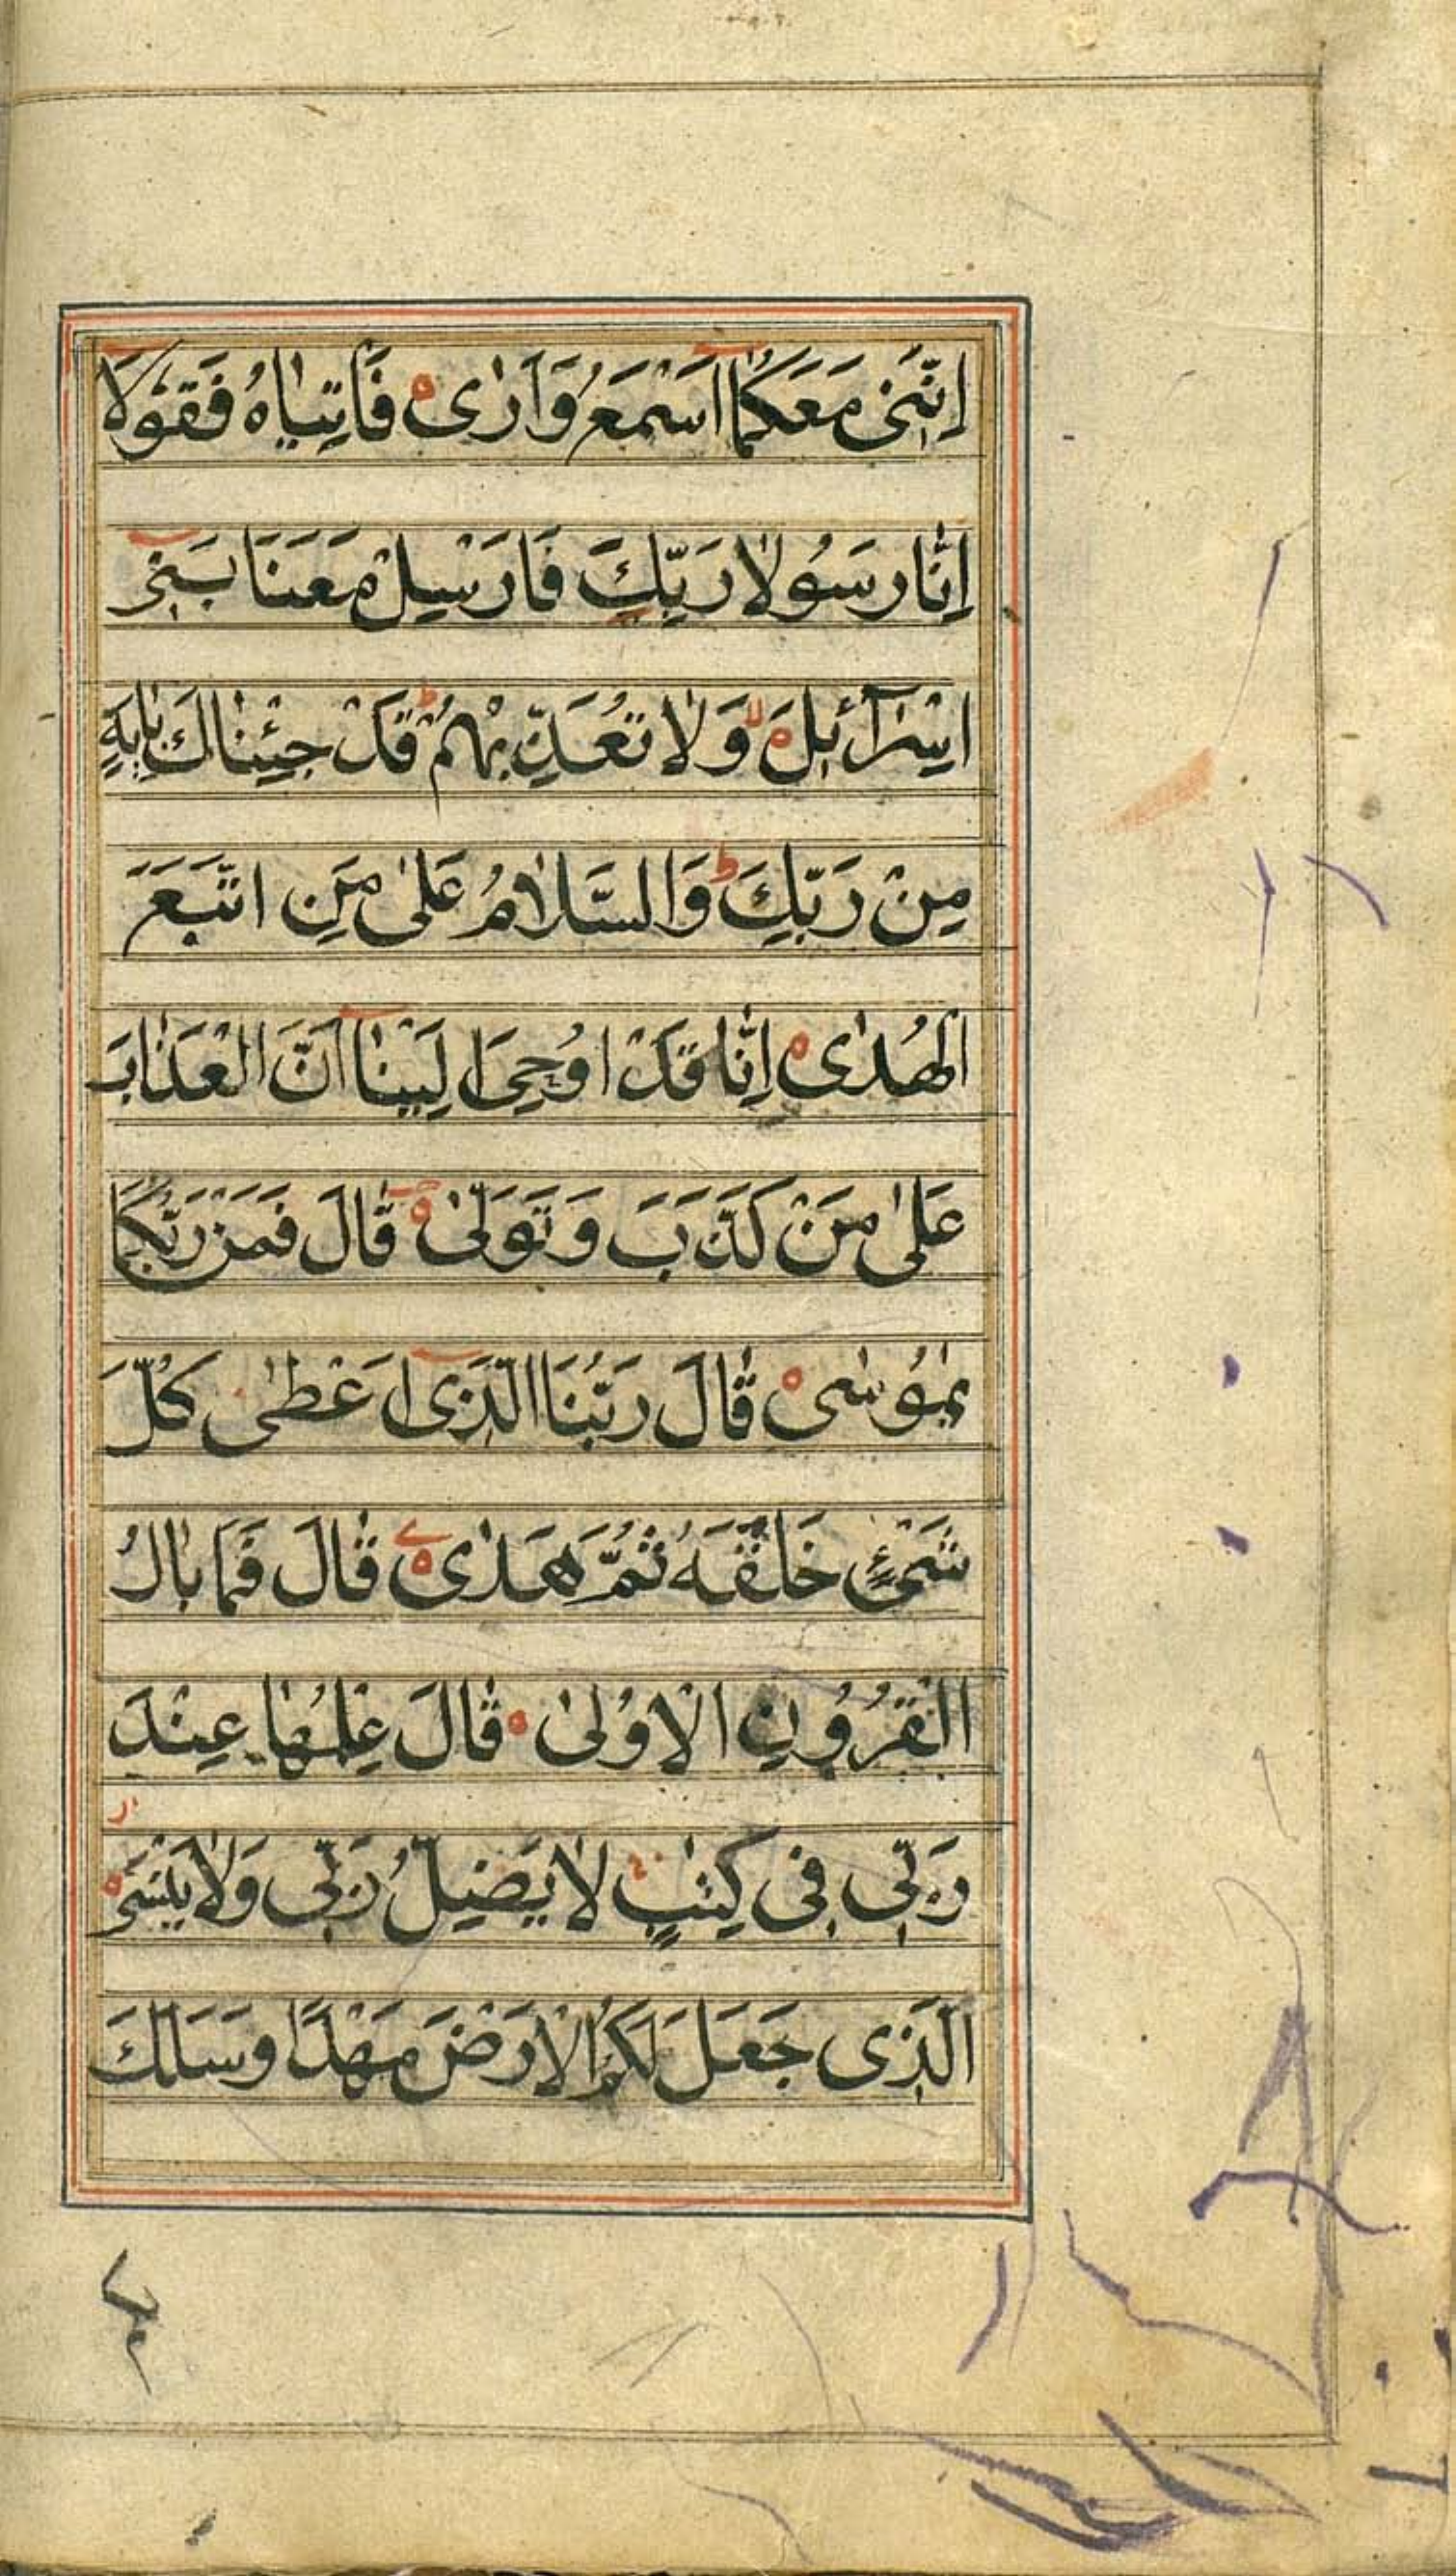 اِنَّنِیْ مَعَكُمَاۤ اَسْمَعُ وَاَرٰی ہ فَاْتِیَاہُ فَقُوْلَاۤ
اِنَّا رَسُوْلَا رَبِّكَ فَاَرْسِلْ مَعَنَا بَنِیْۤ
اِسْرَآئِیْلَ ہ لا وَلَا تُعَذِّبْهُمْ ط قَدْ جِئْنَاكَ بِاٰیَةٍ
مِنْ رَبِّكَ ط وَالسَّلَامُ عَلٰی مَنِ اتَّبَعَ
الْهُدٰی ہ اِنَّا قَدْ اُوْحِیَ اِلَیْنَاۤ اَنَّ الْعَذَابَ
عَلٰی مَنْ كَذَّبَ وَتَوَلّٰی ہ قَالَ فَمَنْ رَبُّكُمَا
یٰمُوْسٰی ہ قَالَ رَبُّنَا الَّذِیْۤ اَعْطٰی كُلَّ
شَیْءٍ خَلْقَهُ ثُمَّ هَدٰی ہ قَالَ فَمَا بَالُ
الْقُرُوْنِ الْاُوْلٰی ہ قَالَ عِلْمُهَا عِنْدَ
رَبِّی فِی كِتٰبٍ لَا یَضِلُّ رَبِّی وَلَا یَنْسَی ہ
الَّذِی جَعَلَ لَكُمُ الْاَرْضَ مَهْدًا وَسَلَكَ